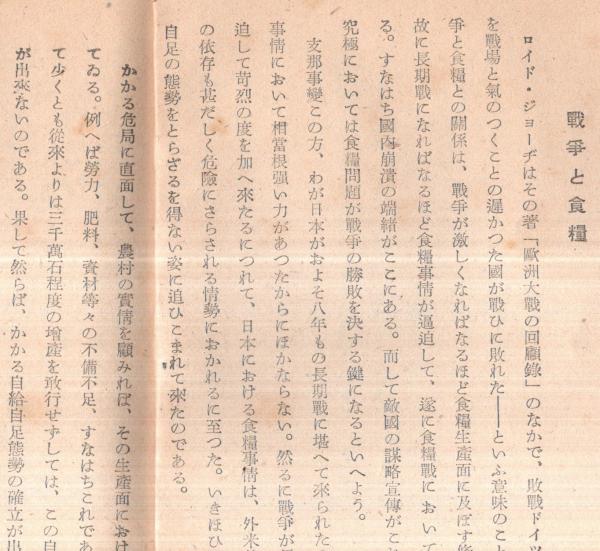 戰爭と食糧
ロイド・ジョーヂはその著「歐洲大戰の回顧錄」のなかで、敗戰ドイツ
を戰場と氣のつくことの遲かつた國が戰ひに敗れた――といふ意味のこと
爭と食糧との關係は、戰爭が激しくなればなるほど食糧生產面に及ぼす影
故に長期戰になればなるほど食糧事情が逼迫して、遂に食糧戰において
る。すなはち國內崩潰の端緖がここにある。而して敵國の謀略宣傳がこと
究極においては食糧問題が戰爭の勝敗を決する鍵になるといへよう。
支那事變この方、わが日本がおよそ八年もの長期戰に堪へて來られた
事情において相當根强い力があつたからにほかならない。然るに戰爭が
迫して苛烈の度を加へ來たるにつれて、日本における食糧事情は、外米
の依存も甚だしく危險にさらされる情勢におかれるに至つた。いきほひ
自足の態勢をとらざるを得ない姿に追ひこまれて來たのである。
かかる危局に直面して、農村の實情を顧みれば、その生產面におけ
てゐる。例へば勞力、肥料、資材等々の不備不足、すなはちこれであ
て少くとも從來よりは三千萬石程度の增產を敢行せずしては、この自
が出來ないのである。果して然らば、かかる自給自足態勢の確立が出